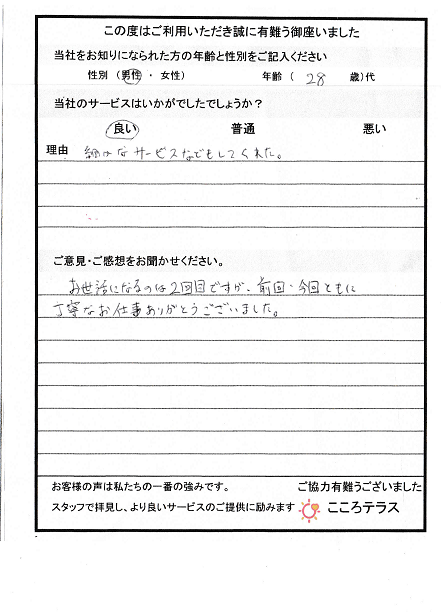 この度はご利用いただき誠に有難う御座いました
当社をお知りになられた方の年齢と性別をご記入ください
性別 (男性・女性) 年齢 ( 28 歳)代
当社のサービスはいかがでしたでしょうか？
良い 普通 悪い
理由 細かなサービスなどもしてくれた。
ご意見・ご感想をお聞かせください。
お世話になるのは2回目ですが、前回・今回ともに
丁寧なお仕事ありがとうございました。
お客様の声は私たちの一番の強みです。 ご協力有難うございました
スタッフで拝見し、より良いサービスのご提供に励みます こころテラス